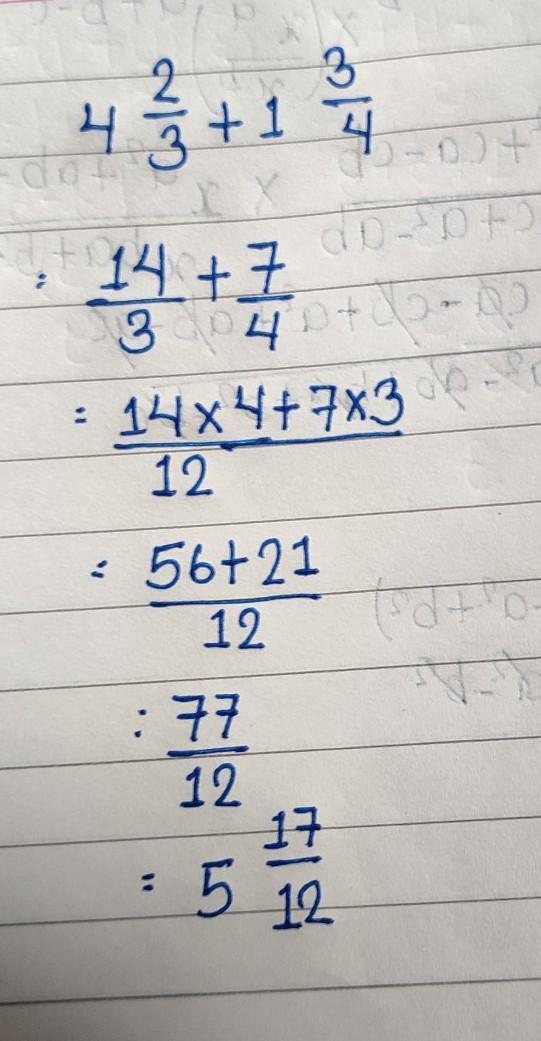 4 2/3 + 1 3/4
: 14/3 + 7/4
= 14×4+7×3/12
= 56+21/12
: 77/12
= 5 17/12